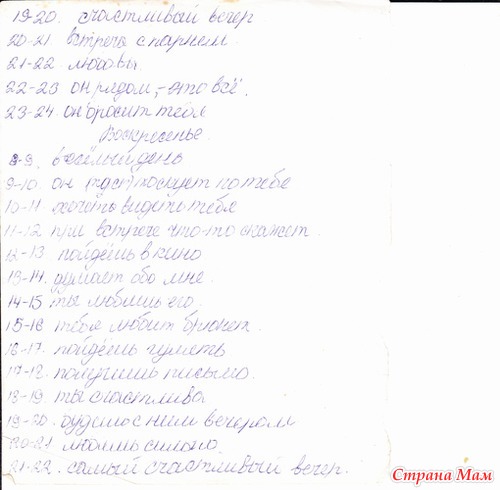 19-20. счастливый вечер
20-21. встреча с парнем.
21-22. любовь
22-23 он рядом, - это всё.
23-24. он бросит тебя
Воскресенье.
8-9. весёлый день
9-10. он тоскует по тебе
10-11 хочет видеть тебя
11-12 при встрече что-то скажет.
12-13. пойдёшь в кино
13-14. думает обо мне.
14-15 ты любишь его.
15-16 тебя любит брюнет.
16-17. пойдёшь гулять
17-18. получишь письмо.
18-19. ты счастлива
19-20. будешь с ним вечером
20-21. любишь сильно.
21-22. самый счастливый вечер.
Страна Мам